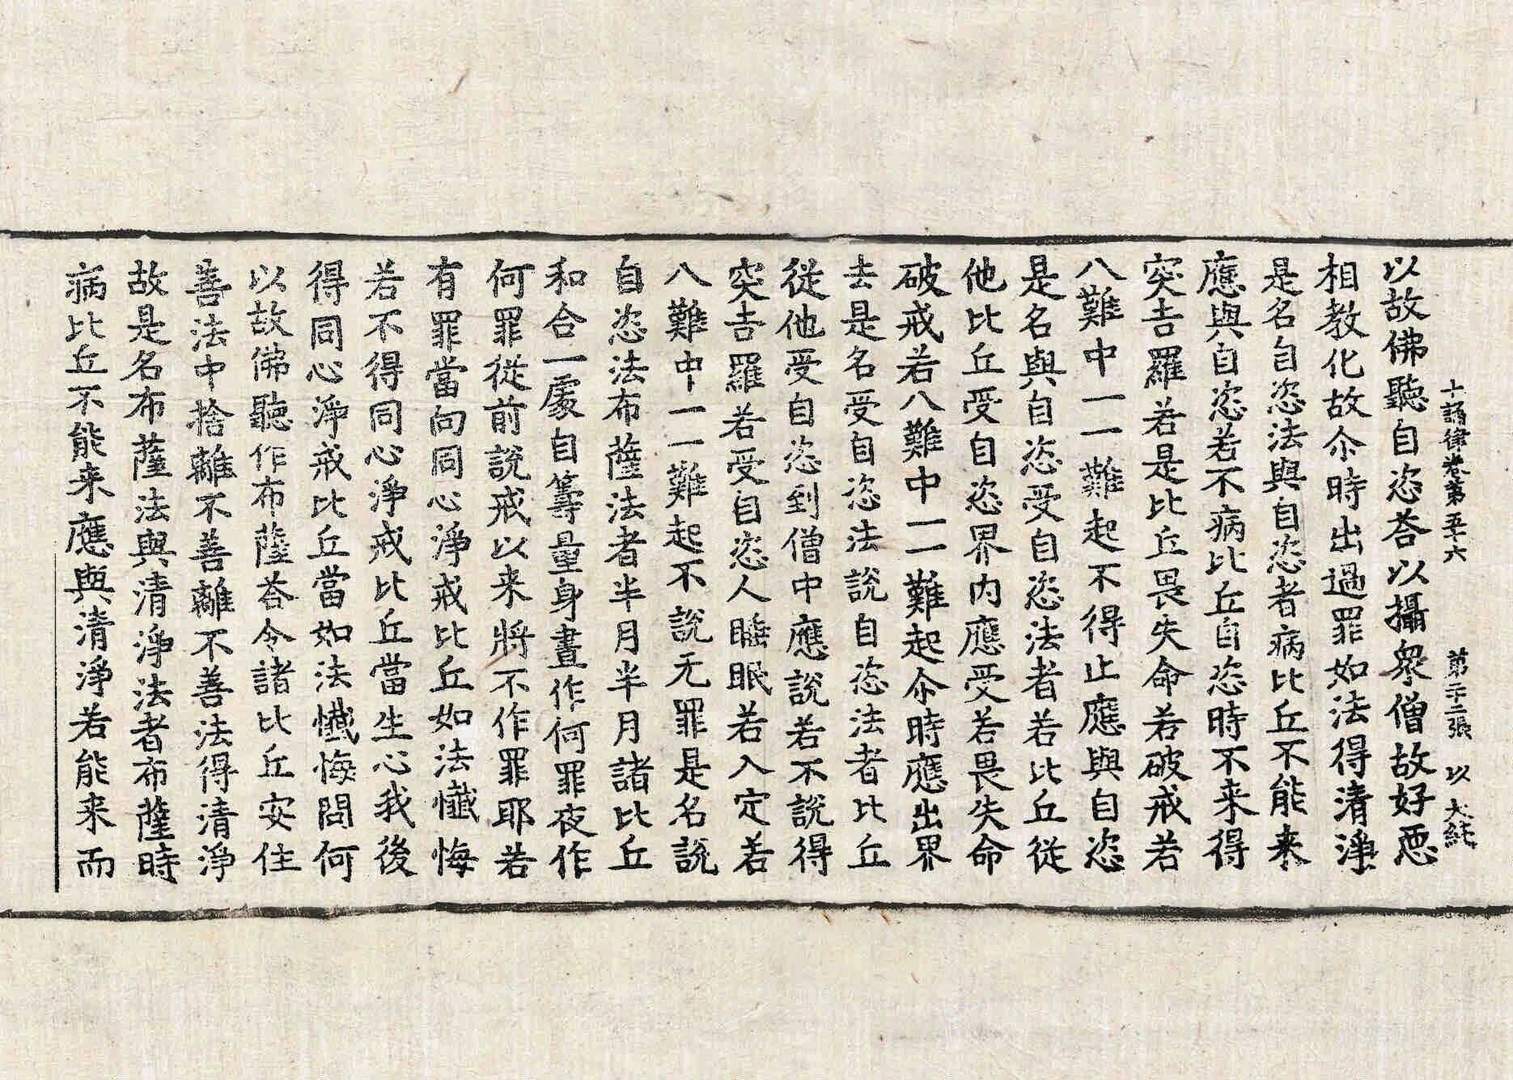 十誦律卷第五十六　第二十二張　以　大純
以故佛聽自恣荅以攝衆僧故好惡
相教化故尒時出過罪如法得清淨
是名自恣法與自恣者病比丘不能来
應與自恣若不病比丘自恣時不来得
突吉羅若是比丘畏失命若破戒若
八難中一一難起不得止應與自恣
是名與自恣受自恣法者若比丘從
他比丘受自恣界内應受若畏失命
破戒若八難中一一難起尒時應出界
去是名受自恣法說自恣法者比丘
從他受自恣到僧中應說若不說得
突吉羅若受自恣人睡眠若入定若
八難中一一難起不說无罪是名說
自恣法布薩法者半月半月諸比丘
和合一處自籌量身晝作何罪夜作
何罪從前說戒以来將不作罪耶若
有罪當向同心淨戒比丘如法懺悔
若不得同心淨戒比丘當生心我後
得同心淨戒比丘當如法懺悔問何
以故佛聽作布薩荅令諸比丘安住
善法中捨離不善離不善法得清淨
故是名布薩法與清淨法者布薩時
病比丘不能来應與清淨若能来而